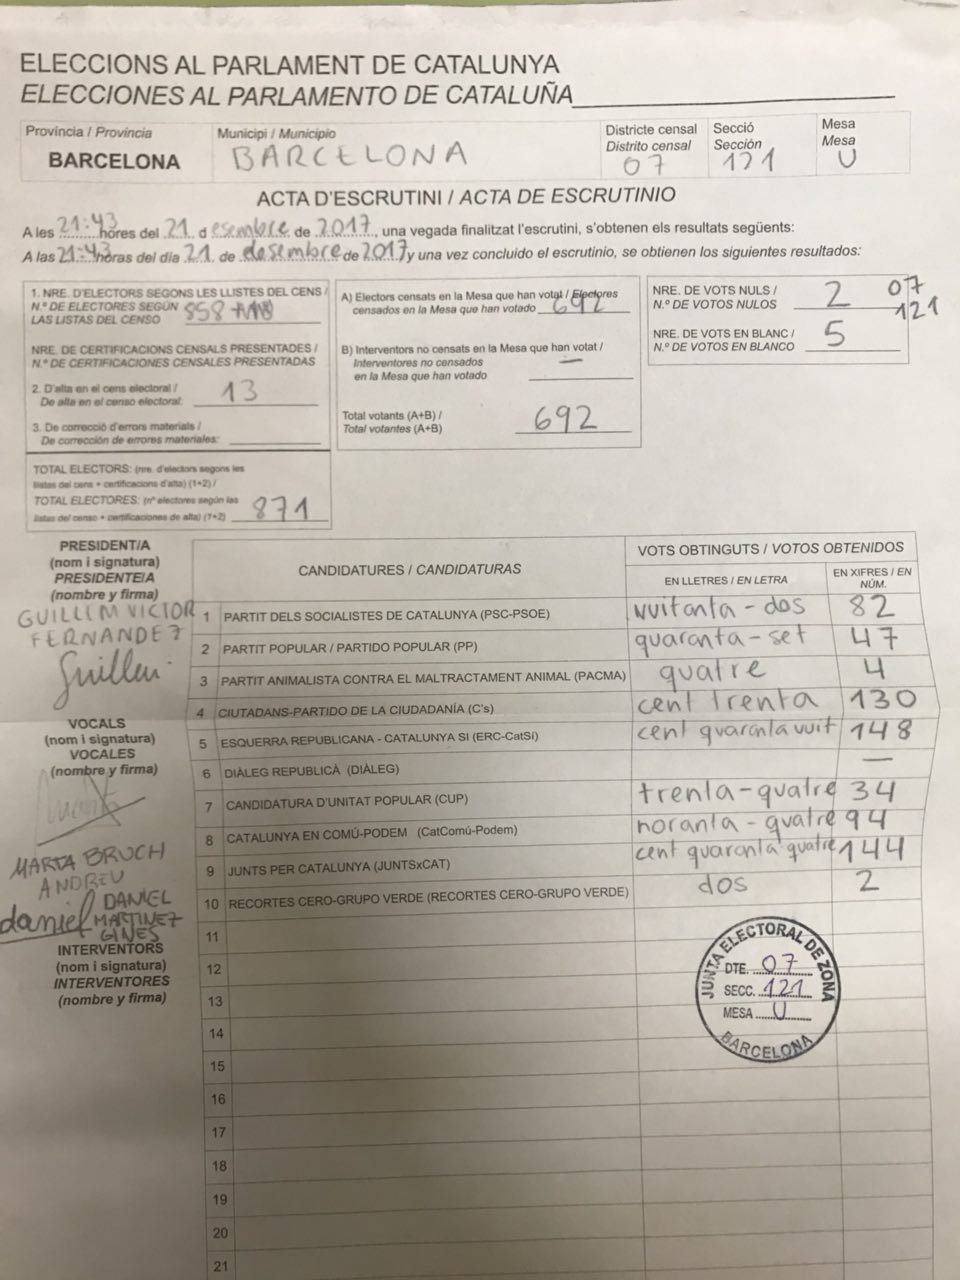 ELECCIONS AL PARLAMENT DE CATALUNYA
ELECCIONES AL PARLAMENTO DE CATALUÑA
Provincia / Provincia
BARCELONA
Municipi / Municipio
BARCELONA
Districte censal
Distrito censal
07
Secció
Sección
121
Mesa
Mesa
U
ACTA D'ESCRUTINI / ACTA DE ESCRUTINIO
A les 21:43 hores del 21 d esembre de 2017, una vegada finalitzat l'escrutini, s'obtenen els resultats següents:
A las 21:43 horas del día 21 de desembre de 2017 y una vez concluido el escrutinio, se obtienen los siguientes resultados:
1. NRE. D'ELECTORS SEGONS LES LLISTES DEL CENS /
N.º DE ELECTORES SEGÚN
LAS LISTAS DEL CENSO 858
NRE. DE CERTIFICACIONS CENSALS PRESENTADES /
N.º DE CERTIFICACIONES CENSALES PRESENTADAS
2. D'alta en el cens electoral /
De alta en el censo electoral: 13
3. De correcció d'errors materials /
De corrección de errores materiales:
TOTAL ELECTORS: (nre. d'electors segons les
llistes del cens + certificacions d'alta) (1+2) /
TOTAL ELECTORES: (nº electores según las
listas del censo + certificaciones de alta) (1+2) 871
A) Electors censats en la Mesa que han votat / Electores
censados en la Mesa que han votado 692
B) Interventors no censats en la Mesa que han votat /
Interventores no censados
en la Mesa que han votado —
Total votants (A+B) /
Total votantes (A+B) 692
NRE. DE VOTS NULS /
N.º DE VOTOS NULOS 2
07
121
NRE. DE VOTS EN BLANC /
N.º DE VOTOS EN BLANCO 5
PRESIDENT/A
(nom i signatura)
PRESIDENTE/A
(nombre y firma)
GUILLEM VICTOR
FERNANDEZ
Guillem
VOCALS
(nom i signatura)
VOCALES
(nombre y firma)
MARTA BRUCH
ANDREU
daniel DANIEL
MARTINEZ
GINES
INTERVENTORS
(nom i signatura)
INTERVENTORES
(nombre y firma)
CANDIDATURES / CANDIDATURAS
VOTS OBTINGUTS / VOTOS OBTENIDOS
EN LLETRES / EN LETRA
EN XIFRES / EN NÚM.
1 PARTIT DELS SOCIALISTES DE CATALUNYA (PSC-PSOE) vuitanta-dos 82
2 PARTIT POPULAR / PARTIDO POPULAR (PP) quaranta-set 47
3 PARTIT ANIMALISTA CONTRA EL MALTRACTAMENT ANIMAL (PACMA) quatre 4
4 CIUTADANS-PARTIDO DE LA CIUDADANÍA (C's) cent trenta 130
5 ESQUERRA REPUBLICANA - CATALUNYA SI (ERC-CatSí) cent quaranta vuit 148
6 DIÀLEG REPUBLICÀ (DIÀLEG) —
7 CANDIDATURA D'UNITAT POPULAR (CUP) trenta-quatre 34
8 CATALUNYA EN COMÚ-PODEM (CatComú-Podem) noranta-quatre 94
9 JUNTS PER CATALUNYA (JUNTSxCAT) cent quaranta quatre 144
10 RECORTES CERO-GRUPO VERDE (RECORTES CERO-GRUPO VERDE) dos 2
11
12
13
14
15
16
17
18
19
20
21
JUNTA ELECTORAL DE ZONA
DTE. 07
SECC. 121
MESA U
BARCELONA